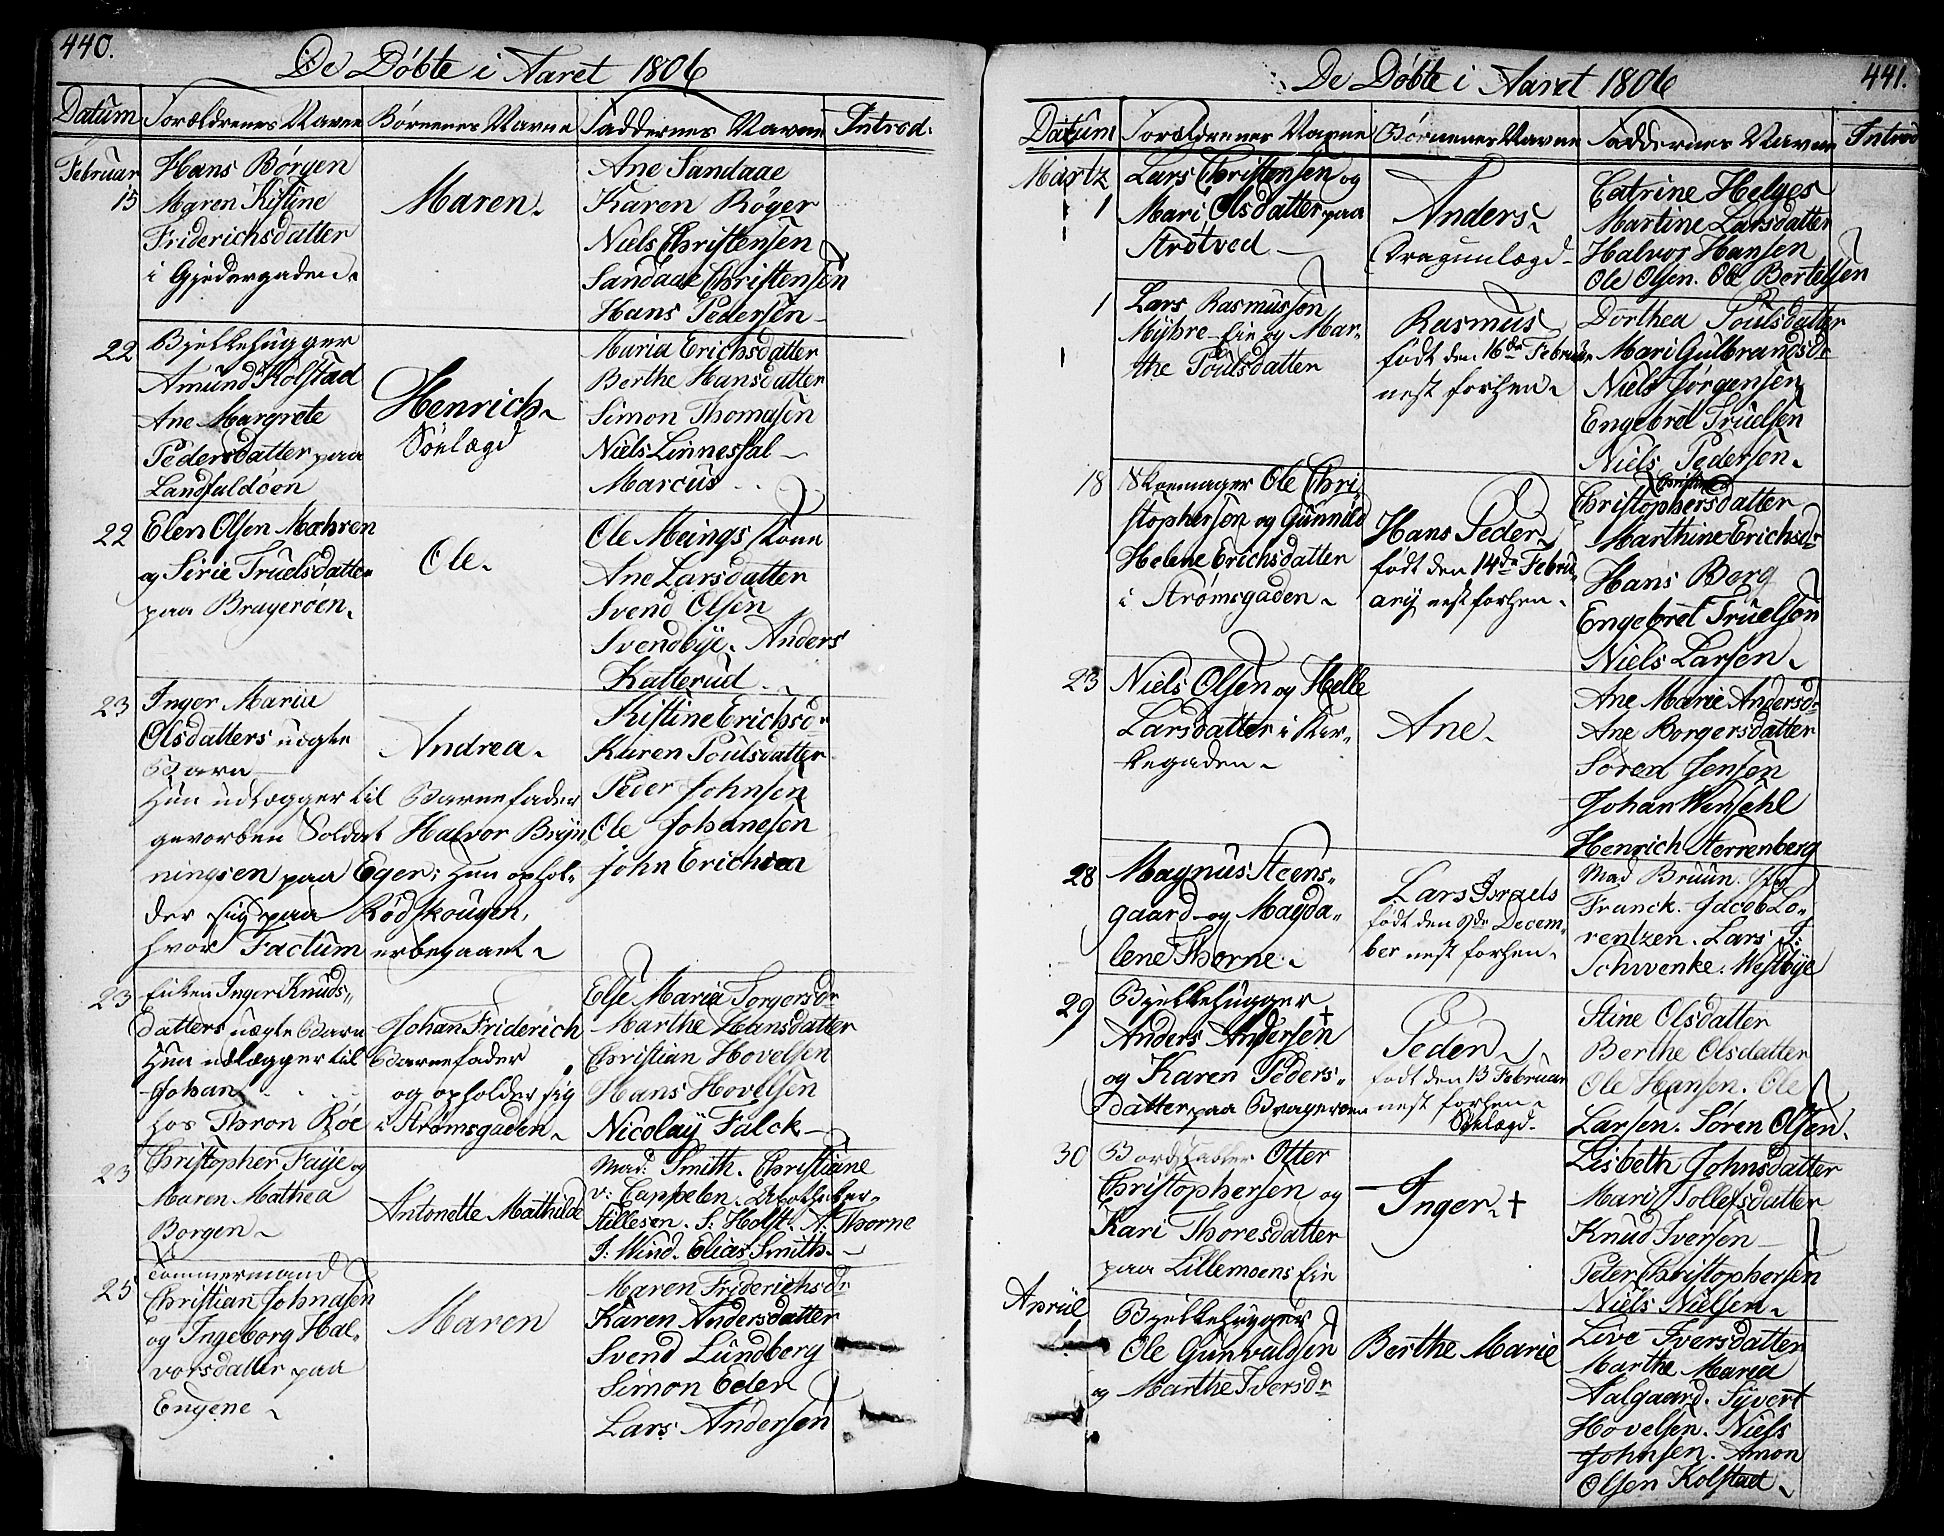 440.
De Døbte i Aaret 1806
Datum Forældrenes Navne Børnenes Navne Faddernes Navne Introd:
Februar
15
Hans Börgen
Maren Kistine
Friderichsdatter
i Gjedergaden
Maren
Ane Sandaae
Karen Röger
Niels Christensen
Sandaae Christensen
Hans Pedersen
22
Bjelkehugger
Amund Kolstad
Ane Margrete
Pedersdatter paa
Landfaldöen
Henrich
Söelægd
Maria Erichsdatter
Berthe Hansdatter
Simon Thomasen
Niels Linnesfal
Marcus
22
Elen Olsen Mæhren
og Sirie Truelsdatter
paa Bragerøen
Ole
Ole Meings Kone
Ane Larsdatter
Svend Olsen
Svendbye. Anders
Katterud
23
Inger Maria
Olsdatters uægte
Barn
Hun udlægger til Barnefader
gevorben Soldat Halvor Bryn-
ningsen paa Eger; Hun ophol-
der sig paa Rödskougen,
hvor Factum er begaaet
Andrea
Kistine Erichsdr
Karen Poulsdatter
Peder Johnsen
Ole Johanesen
John Erichsen
23
Enken Inger Knuds-
datters uægte Barn
Hun udlægger til Barnefader
Johan
og opholder sig
hos Thron Röe i Strømsgaden
Johan Friderich
Else Maria Torgersdr
Marthe Hansdatter
Christian Hovelsen
Hans Hovelsen
Nicolay Falck
23
Christopher Faye og
Maren Mathea
Borgen
Antonette Mathilde
Mad: Smith. Christiane
v: Cappelen. Apotheker
Stillesen. S: Holst. A. Thorne
J: Wind. Elias Smith
25
Tømmermand
Christian Johnasen
og Ingeborg Hal-
vorsdatter paa
Engene
Maren
Maren Friderichsdr
Karen Andersdatter
Svend Lundberg
Simon Eder
Lars Andersen
441.
De Döbte i Aaret 1806
Datum Forældrenes Navne Børnenes Navne Faddernes Navne Introd
Martz
1
Lars Christensen og
Mari Olsdatter paa
Strötved
Anders
Dragunlægd
Catrine Helges
Martine Larsdatter
Halvor Hansen
Ole Olsen. Ole Bertelsen
1
Lars Rasmussen
Myhre-Eie og Mar-
the Poulsdatter
Rasmus
født den 16de Februar
nest forhen
Dorthea Poulsdatter
Mari Gulbrandsdr
Niels Jörgensen
Engebret Truelsen
Niels Pedersen
18
Skoemager Ole Chri-
stophersen og Gunnild
Helene Erichsdatter
i Strömsgaden
Hans Peder
født den 14de Febru-
ary nest forhen
Christine
Christophersdatter
Marthine Erichsdr
Hans Berg
Engebret Truelsen
Niels Larsen
23
Niels Olsen og Helle
Larsdatter i Kir-
kegaden
Ane
Ane Marie Andersdr
Ane Borgersdatter
Sören Jensen
Johan Wensehl
Henrich Sterrenberg
28
Magnus Steens-
gaard og Magda-
lene Thorne
Lars Israels
født den 9de Decem-
ber nest forhen
Mad Bruun.
Franck. Jacob Lo-
rentzen. Lars J:
Schwenke. Westbye
29
Bjelkehugger
Anders Andersen †
og Karen Peders-
datter paa Bragerøen
Peder
født den 13 Februar
nest forhen
Söelægd
Stine Olsdatter
Berthe Olsdatter
Ole Hansen. Ole
Larsen. Sören Olsen
30
Bordstabler Otter
Christophersen og
Kari Thoresdatter
paa Lillemoens Eie
Inger †
Lisbeth Johnsdatter
Mari Tollefsdatter
Knud Iversen
Peter Christophersen
Niels Nielsen
Apriil
1
Bjelkehugger
Ole Gunvaldsen
og Marthe Iversdr
Berthe Marie
Live Iversdatter
Marthe Maria
Aalgaard. Syvert
Hovelsen. Niels
Johnsen. Amon
Olsen Kolstad